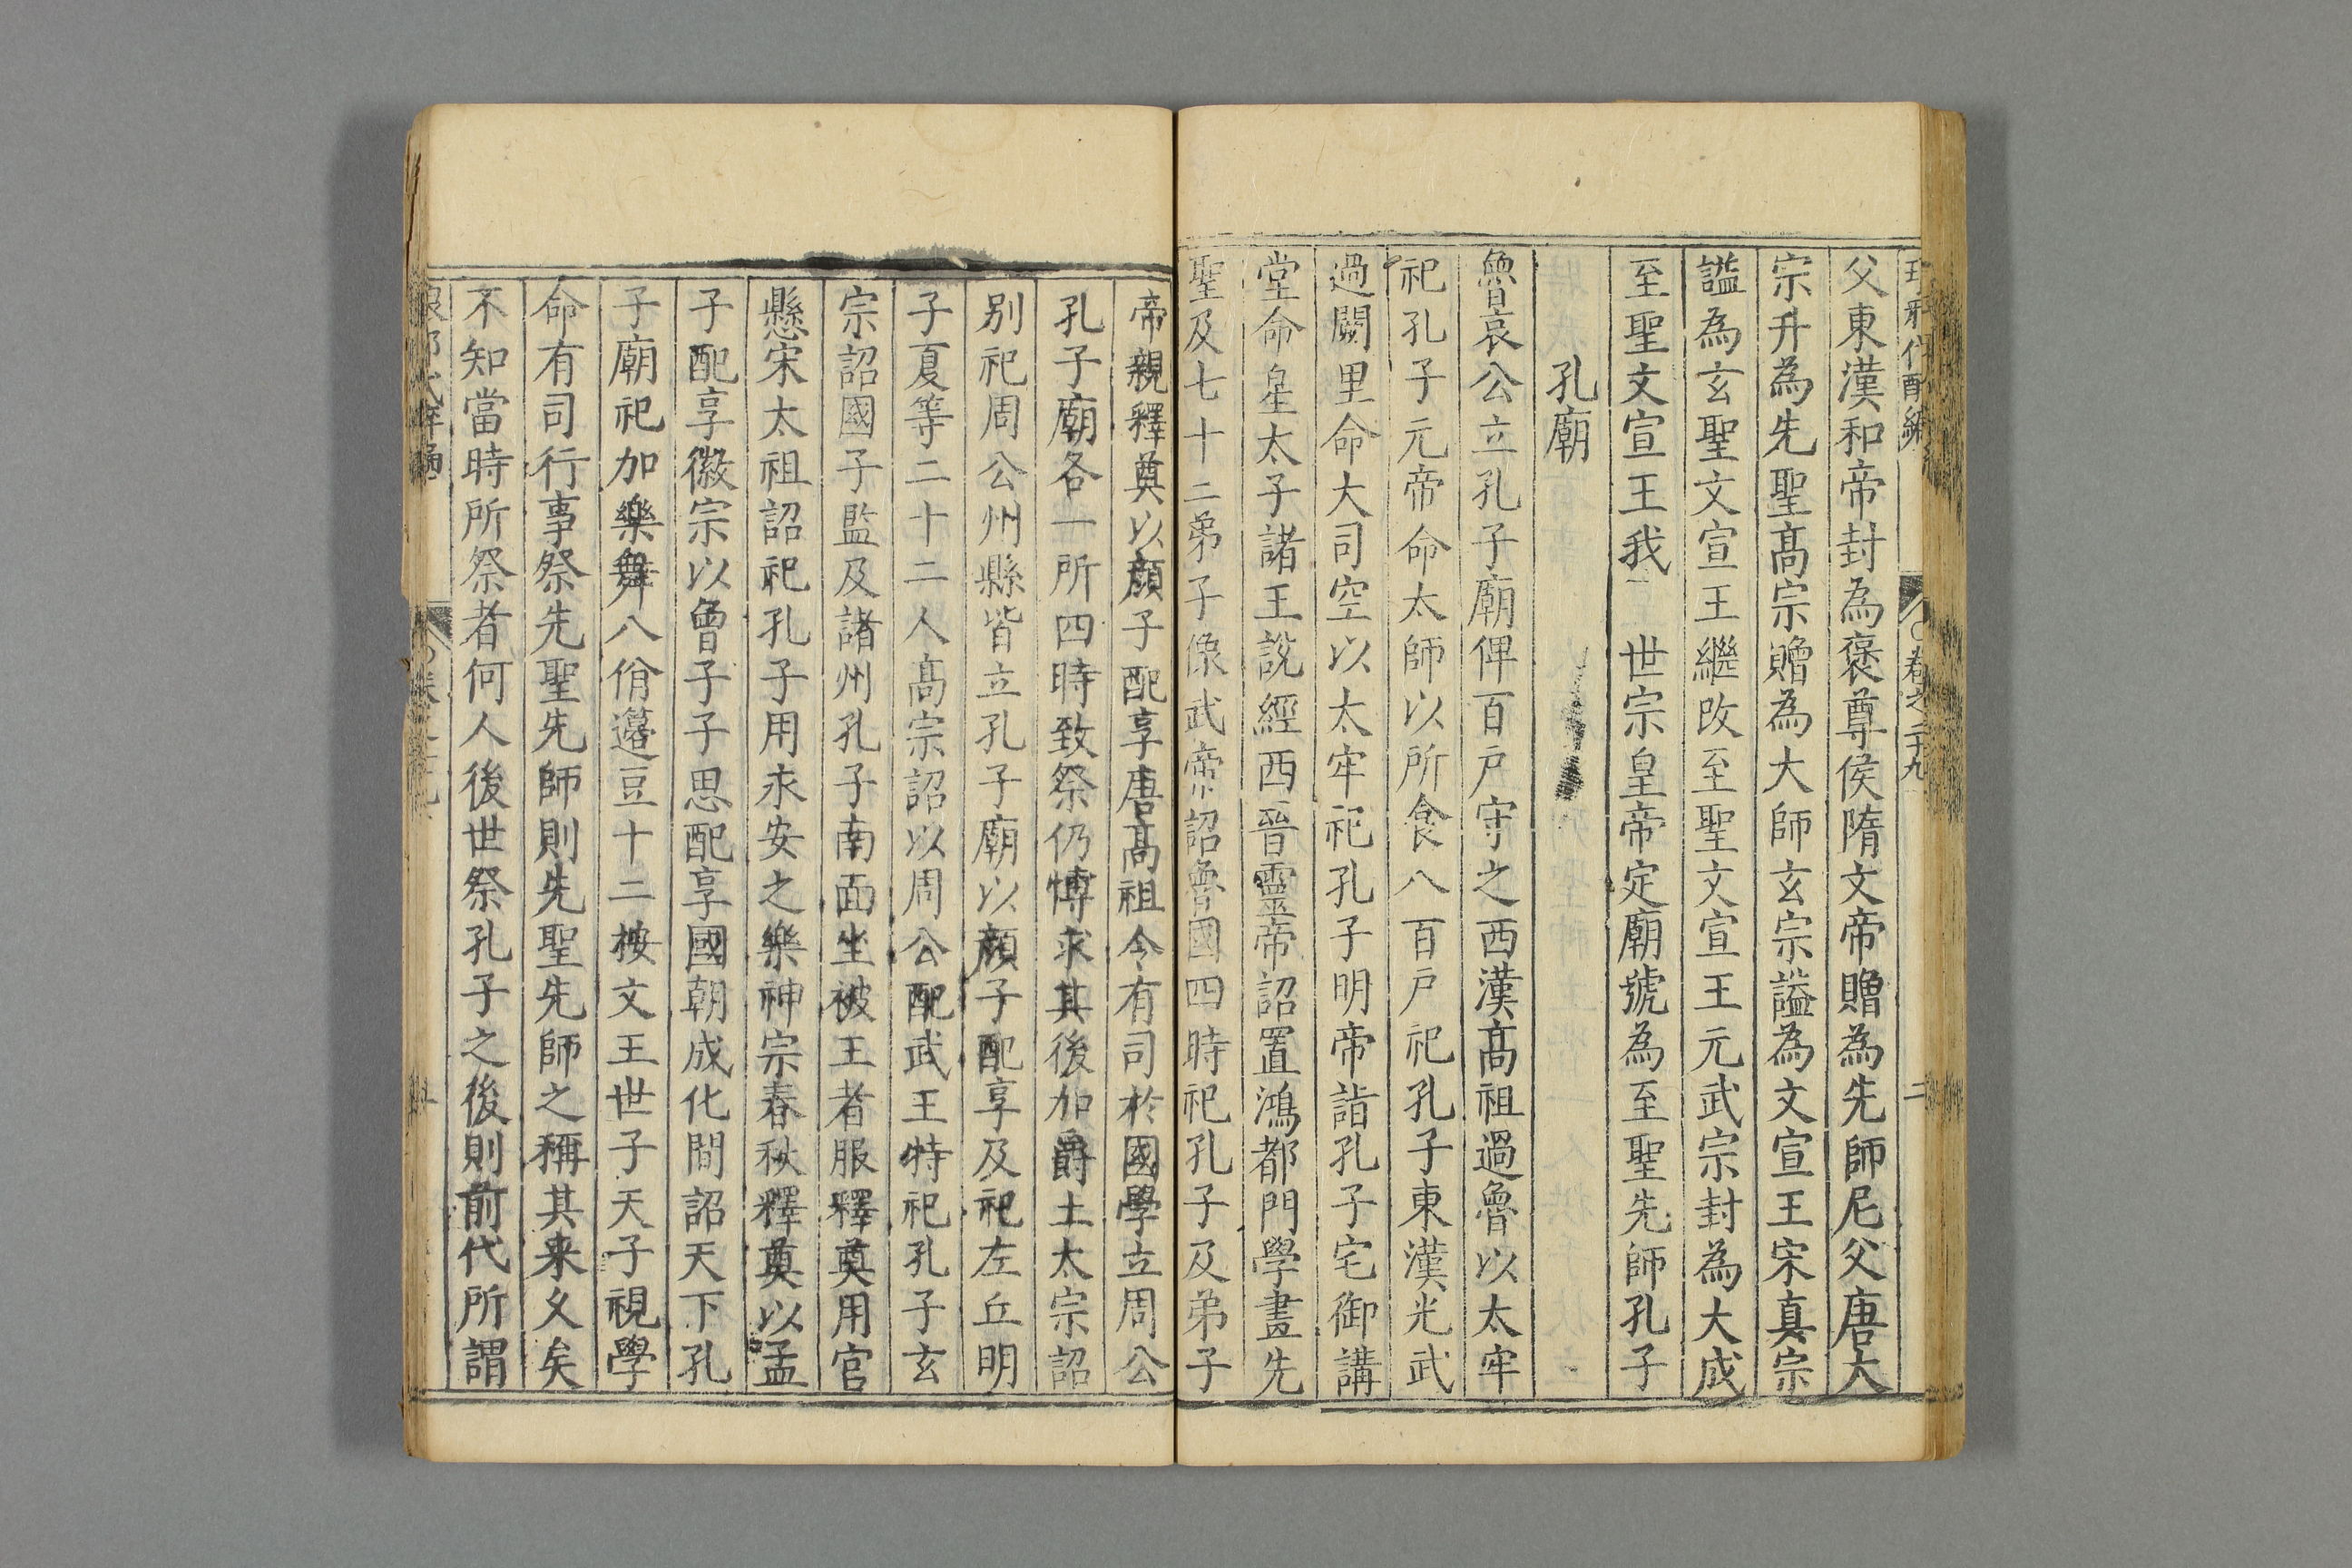 父東漢和帝封為褒尊侯隋文帝贈為先師尼父唐大
宗升為先聖髙宗贈為大師玄宗謚為文宣王宋真宗
謚為玄聖文宣王繼改至聖文宣王元武宗封為大成
至聖文宣王我 世宗皇帝定廟號為至聖先師孔子
孔廟
魯哀公立孔子廟俾百戶守之西漢髙祖過魯以太牢
祀孔子元帝命太師以所食八百戶祀孔子東漢光武
過闕里命大司空以太牢祀孔子明帝詣孔子宅御講
堂命皇太子諸王說經西晉靈帝詔置鴻都門學畫先
聖及七十二弟子像武帝詔魯國四時祀孔子及弟子
帝親釋奠以顔子配享唐髙祖令有司於國學立周公
孔子廟各一所四時致祭仍博求其後加爵土太宗詔
别祀周公州縣皆立孔子廟以顔子配享及祀左丘明
子夏等二十二人髙宗詔以周公配武王特祀孔子玄
宗詔國子監及諸州孔子南面坐被王者服釋奠用官
懸宋太祖詔祀孔子用永安之樂神宗春秋釋奠以孟
子配享徽宗以曾子子思配享國朝成化間詔天下孔
子廟祀加樂舞八佾籩豆十二按文王世子天子視學
命有司行事祭先聖先師則先聖先師之稱其来久矣
不知當時所祭者何人後世祭孔子之後則前代所謂
卷之二十九
二